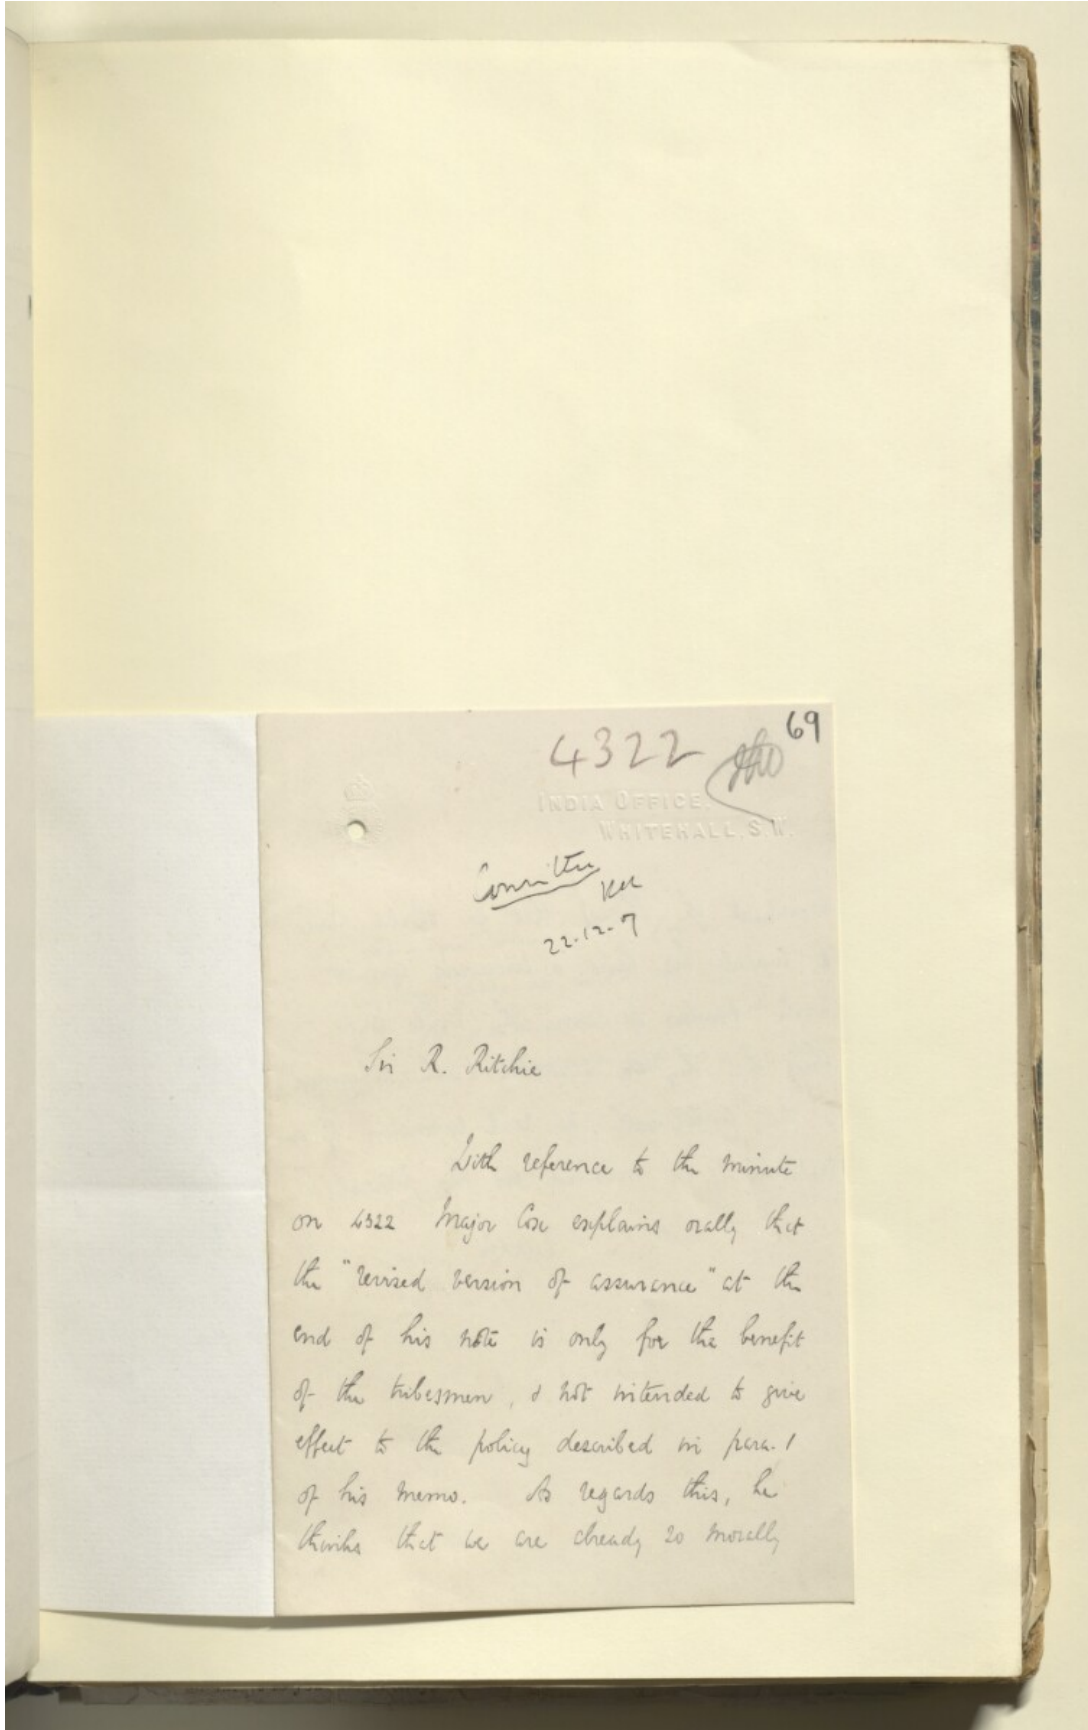 69
4322
INDIA OFFICE,
WHITEHALL, S.W.
Committee
22.12.7
Sir R. Ritchie
With reference to the minute
on 4322 Major Cox explains orally that
the "revised version of assurance" at the
end of his note is only for the benefit
of the tribesmen, & not intended to give
effect to the policy described in para. 1
of his memo. As regards this, he
thinks that we are already so morally